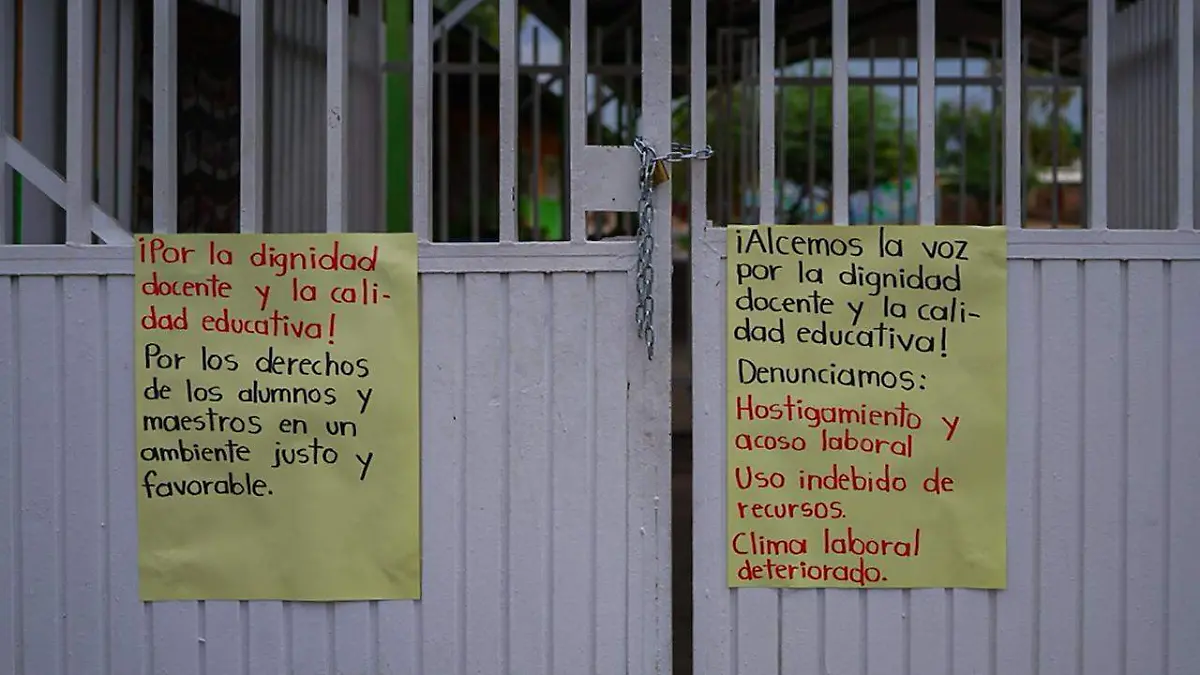 ¡Por la dignidad
docente y la cali-
dad educativa!
Por los derechos
de los alumnos y
maestros en un
ambiente justo y
favorable.
¡Alcemos la voz
por la dignidad
docente y la cali-
dad educativa!
Denunciamos:
Hostigamiento y
acoso laboral
Uso indebido de
recursos.
Clima laboral
deteriorado.